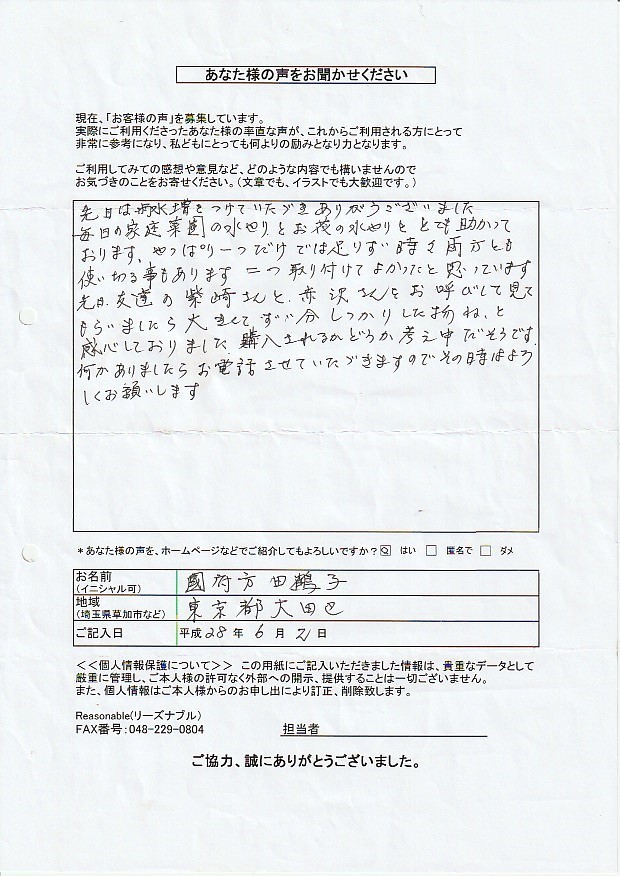 あなた様の声をお聞かせください
現在、「お客様の声」を募集しています。
実際にご利用くださったあなた様の率直な声が、これからご利用される方にとって
非常に参考になり、私どもにとっても何よりの励みとなり力となります。
ご利用してみての感想や意見など、どのような内容でも構いませんので
お気づきのことをお寄せください。(文章でも、イラストでも大歓迎です。)
先日は雨水増をつけていただきありがうございました
毎日の家庭菜園の水やりとお花の水やりととても助かって
おります、やっぱり一つだけでは足りず時々両方とも
使い切る事もあります 二つ取り付けてよかったと思っています
先日、友達の柴崎さんと、赤沢さんをお呼びして見て
もらいましたら大きくてずい分しっかりした物ね、と
感心しておりました 購入されるかどうか考え中だそうです。
何かありましたらお電話させていただきますのでその時はよろ
しくお願いします
*あなた様の声を、ホームページなどでご紹介してもよろしいですか? はい 匿名で ダメ
お名前
(イニシャル可) 國府方田鶴子
地域
(埼玉県草加市など) 東京都大田区
ご記入日 平成28年 6月 21日
<<個人情報保護について>> この用紙にご記入いただきました情報は、貴重なデータとして
厳重に管理し、ご本人様の許可なく外部への開示、提供することは一切ございません。
また、個人情報はご本人様からのお申し出により訂正、削除致します。
Reasonable(リーズナブル)
FAX番号:048-229-0804 担当者
ご協力、誠にありがとうございました。